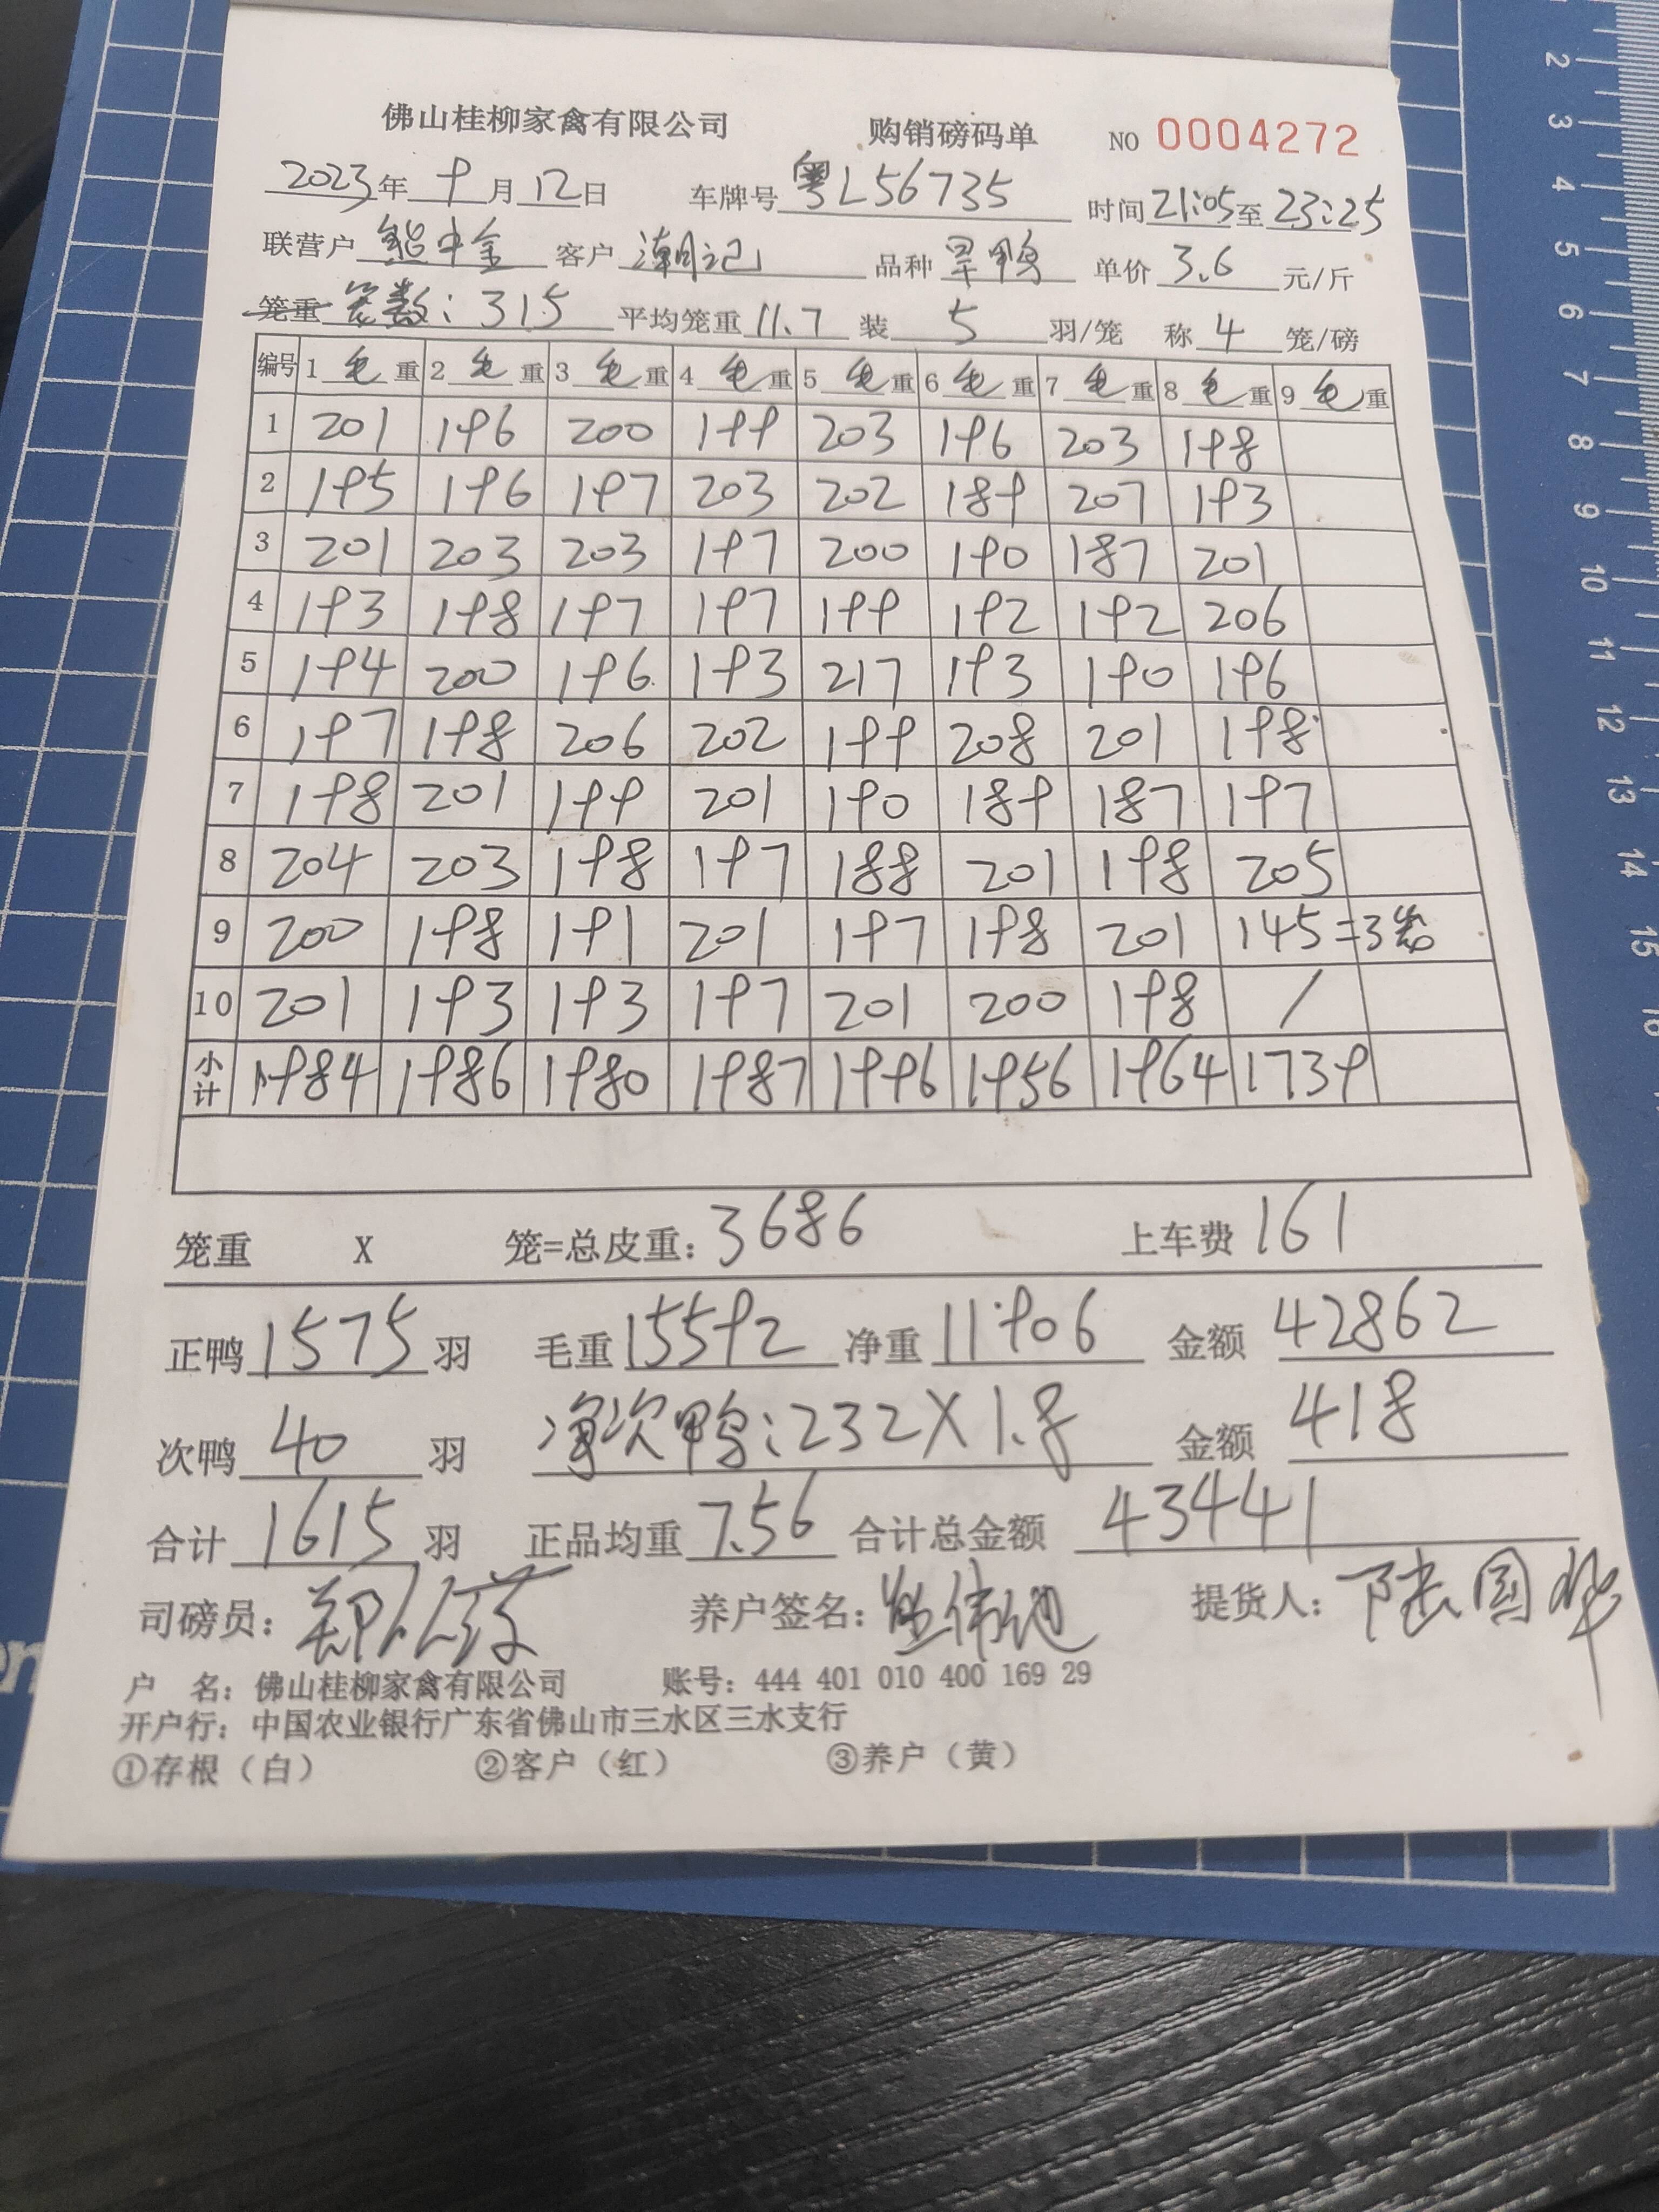 佛山桂柳家禽有限公司 购销磅码单 NO 0004272
2023年 9月 12日 车牌号 粤L56735 时间 21:05至 23:25
联营户 中金 客户 潮记 品种 旱鸭 单价 3.6 元/斤
笼重 笼数:315 平均笼重 11.7 装 5 羽/笼 称 4 笼/磅
编号 1 毛 重 2 毛 重 3 毛 重 4 毛 重 5 毛 重 6 毛 重 7 毛 重 8 毛 重 9 毛 重
1 201 196 200 199 203 196 203 198
2 195 196 197 203 202 189 207 193
3 201 203 203 197 200 190 187 201
4 193 198 197 197 199 192 192 206
5 194 200 196 193 217 193 190 196
6 197 198 206 202 199 208 201 198
7 198 201 199 201 190 189 187 197
8 204 203 198 197 188 201 198 205
9 200 198 191 201 197 198 201 145=3笼
10 201 193 193 197 201 200 198 /
小计 1984 1986 1980 1987 1996 1956 1964 1739
笼重 X 笼=总皮重: 3686 上车费 161
正鸭 1575 羽 毛重 15592 净重 11906 金额 42862
次鸭 40 羽 净次鸭:232X1.8 金额 418
合计 1615 羽 正品均重 7.56 合计总金额 43441
司磅员: 养户签名: 提货人: 陆国华
户 名: 佛山桂柳家禽有限公司 账号: 444 401 010 400 169 29
开户行: 中国农业银行广东省佛山市三水区三水支行
①存根(白) ②客户(红) ③养户(黄)
2
3
4
5
6
7
8
9
10
11
12
13
14
15